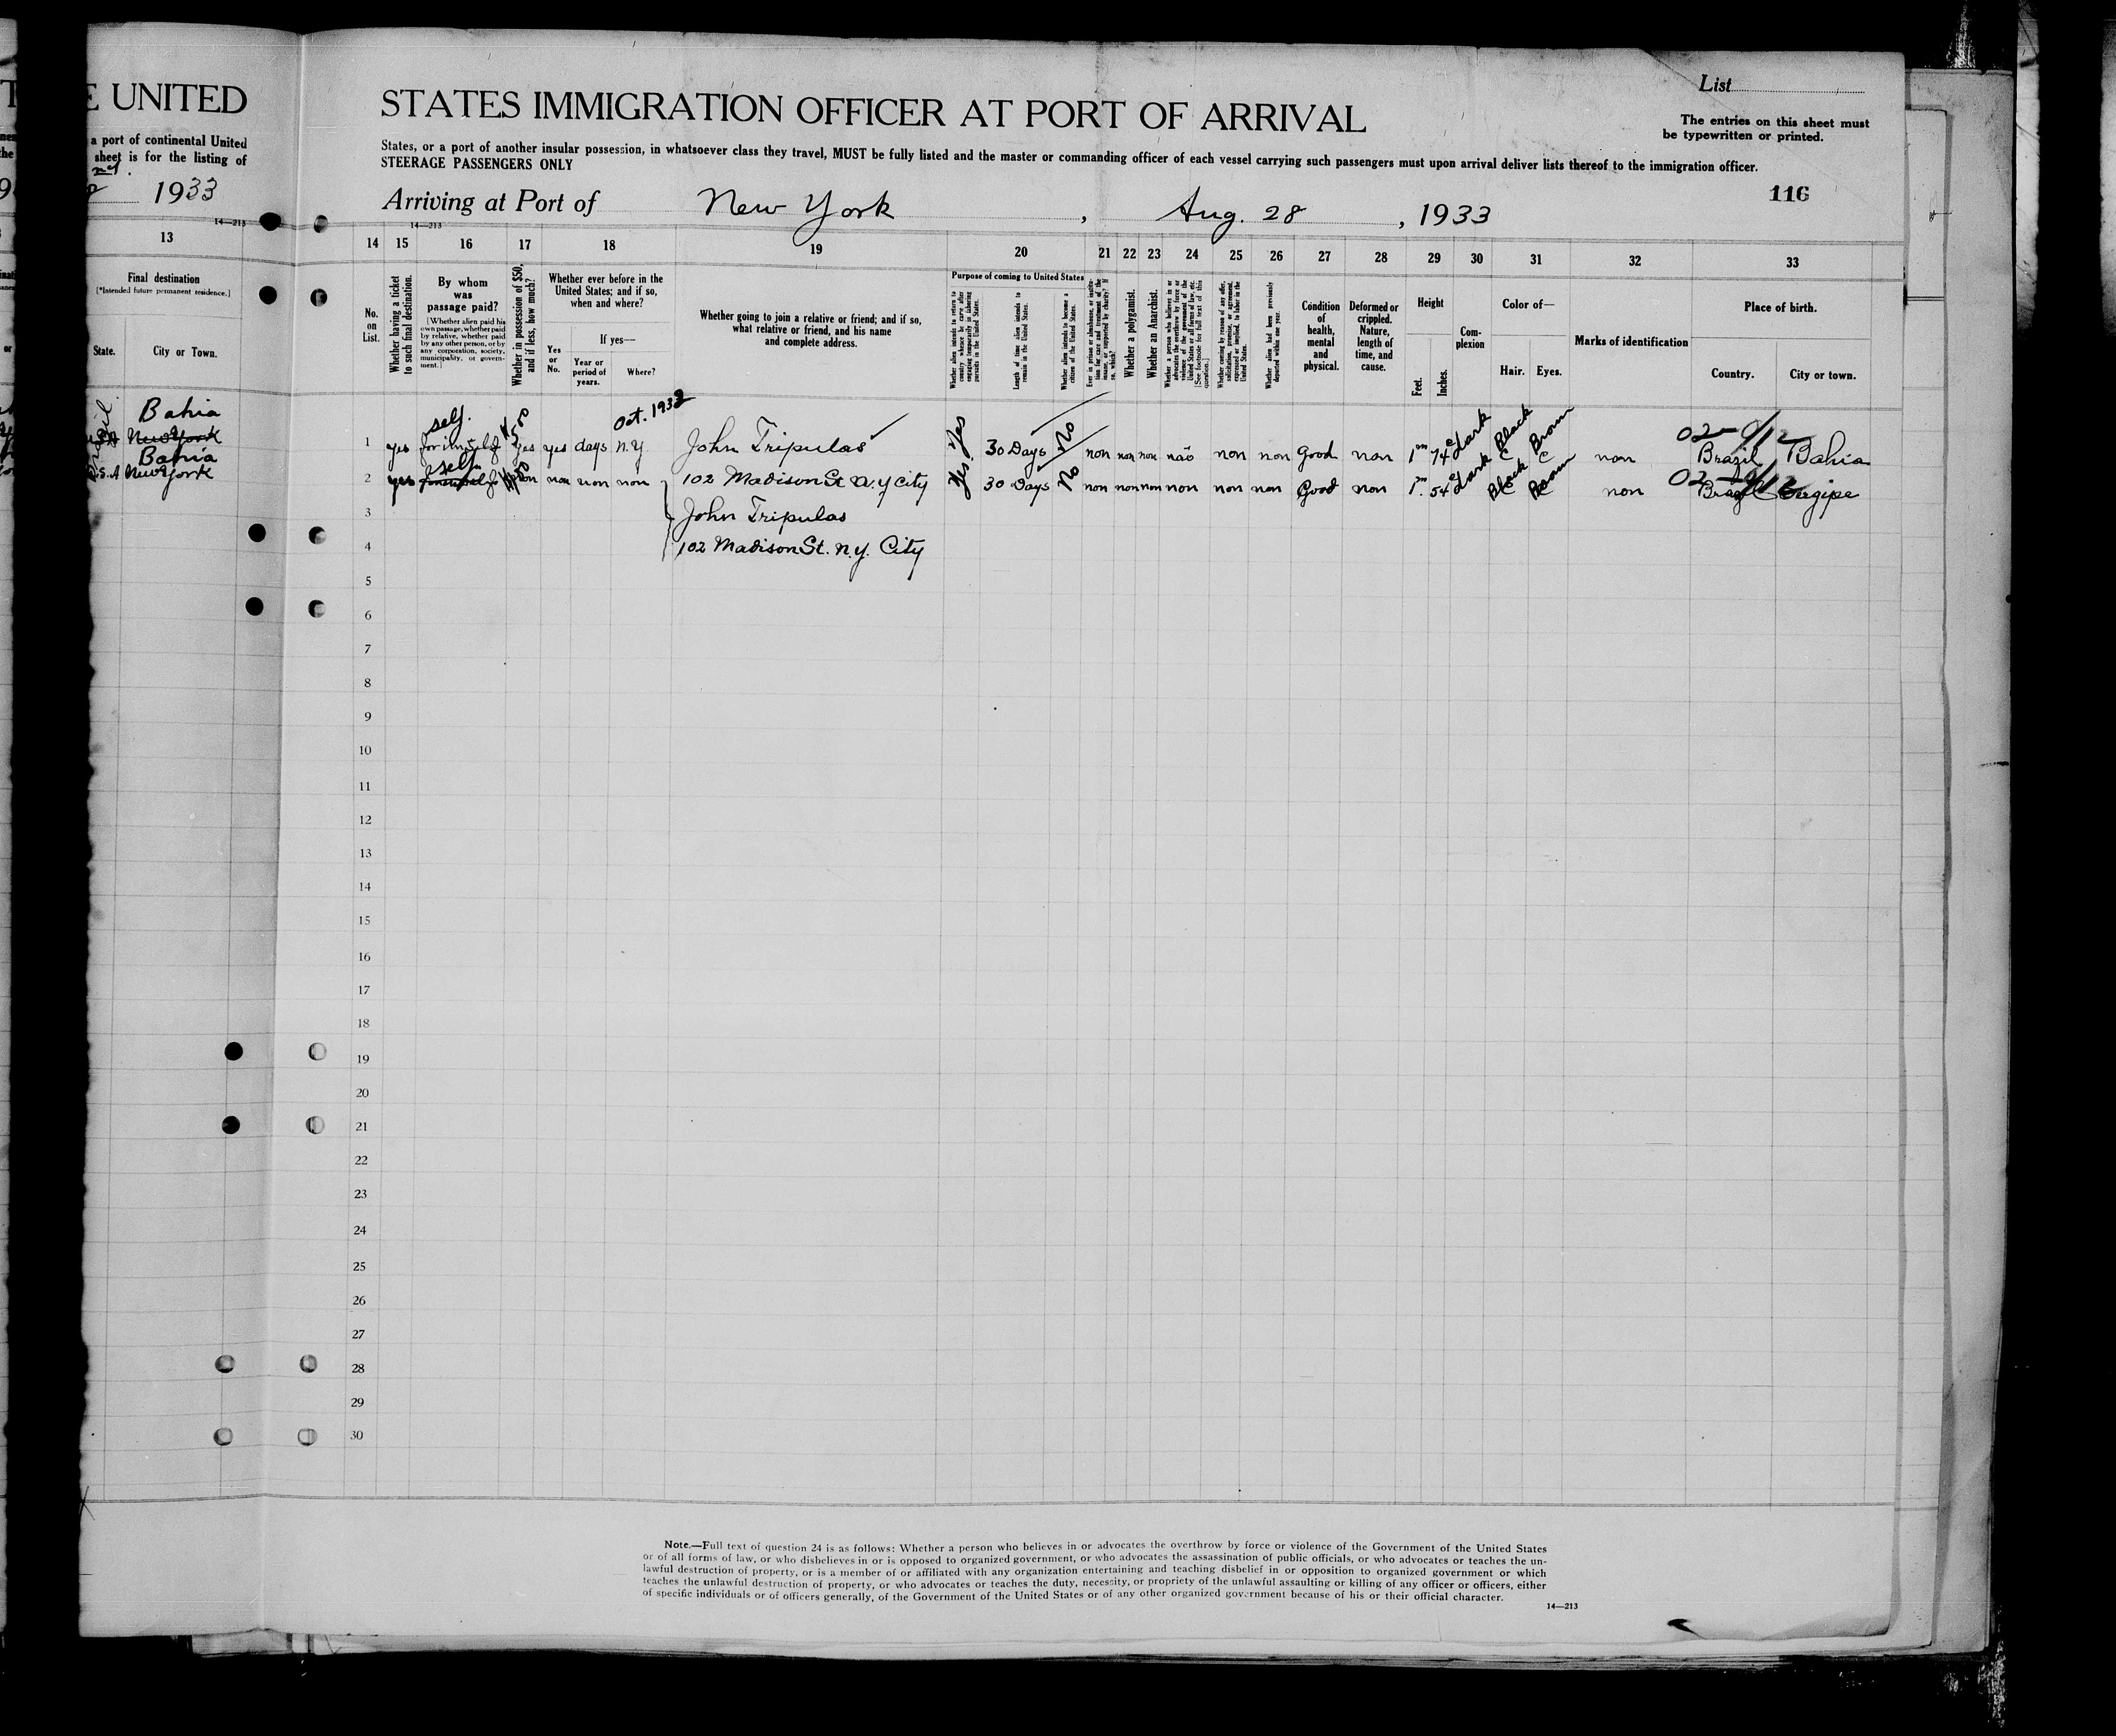 E UNITED
a port of continental United
sheet is for the listing of
1933
14—213
13
Final destination
[*Intended future permanent residence.]
State.
City or Town.
Bahia
New York
Bahia
S.A New York
List
STATES IMMIGRATION OFFICER AT PORT OF ARRIVAL
The entries on this sheet must
be typewritten or printed.
States, or a port of another insular possession, in whatsoever class they travel, MUST be fully listed and the master or commanding officer of each vessel carrying such passengers must upon arrival deliver lists thereof to the immigration officer.
STEERAGE PASSENGERS ONLY
116
Arriving at Port of New York, Aug. 28, 1933
14—213
14 15 16 17 18 19 20 21 22 23 24 25 26 27 28 29 30 31 32 33
No. on List.
Whether having a ticket to such final destination.
By whom was passage paid?
[Whether alien paid his own passage, whether paid by relative, whether paid by any other person, or by any corporation, society, municipality, or government.]
Whether in possession of $50, and if less, how much?
Whether ever before in the United States; and if so, when and where?
Yes or No.
If yes—
Year or period of years.
Where?
Whether going to join a relative or friend; and if so, what relative or friend, and his name and complete address.
Purpose of coming to United States
Whether alien intends to return to country whence he came after engaging temporarily in laboring pursuits in the United States.
Length of time alien intends to remain in the United States.
Whether alien intends to become a citizen of the United States.
Ever in prison or almshouse, or institution for care and treatment of the insane, or supported by charity? If so, which?
Whether a polygamist.
Whether an Anarchist.
Whether a person who believes in or advocates the overthrow by force or violence of the government of the United States or all forms of law, etc. [See footnote for full text of this question.]
Whether coming by reason of any offer, solicitation, promise, or agreement, expressed or implied, to labor in the United States.
Whether alien had been previously deported within one year.
Condition of health, mental and physical.
Deformed or crippled. Nature, length of time, and cause.
Height
Feet.
Inches.
Complexion
Color of—
Hair. Eyes.
Marks of identification
Place of birth.
Country.
City or town.
self. Oct. 1932
1 yes yes yes days N.Y. John Tripulas Yes 30 Days No non non non não non non Good non 1m 74c Dark Black Brown non Brazil Bahia
self
2 yes non non non 102 Madison St N.Y City Yes 30 Days No non non non non non non Good non 1m. 54c Dark Black Brown non Brazil Sergipe
3 John Tripulas
4 102 Madison St. N.Y. City
5
6
7
8
9
10
11
12
13
14
15
16
17
18
19
20
21
22
23
24
25
26
27
28
29
30
Note.—Full text of question 24 is as follows: Whether a person who believes in or advocates the overthrow by force or violence of the Government of the United States
or of all forms of law, or who disbelieves in or is opposed to organized government, or who advocates the assassination of public officials, or who advocates or teaches the un-
lawful destruction of property, or is a member of or affiliated with any organization entertaining and teaching disbelief in or opposition to organized government or which
teaches the unlawful destruction of property, or who advocates or teaches the duty, necessity, or propriety of the unlawful assaulting or killing of any officer or officers, either
of specific individuals or of officers generally, of the Government of the United States or of any other organized government because of his or their official character.
14—213